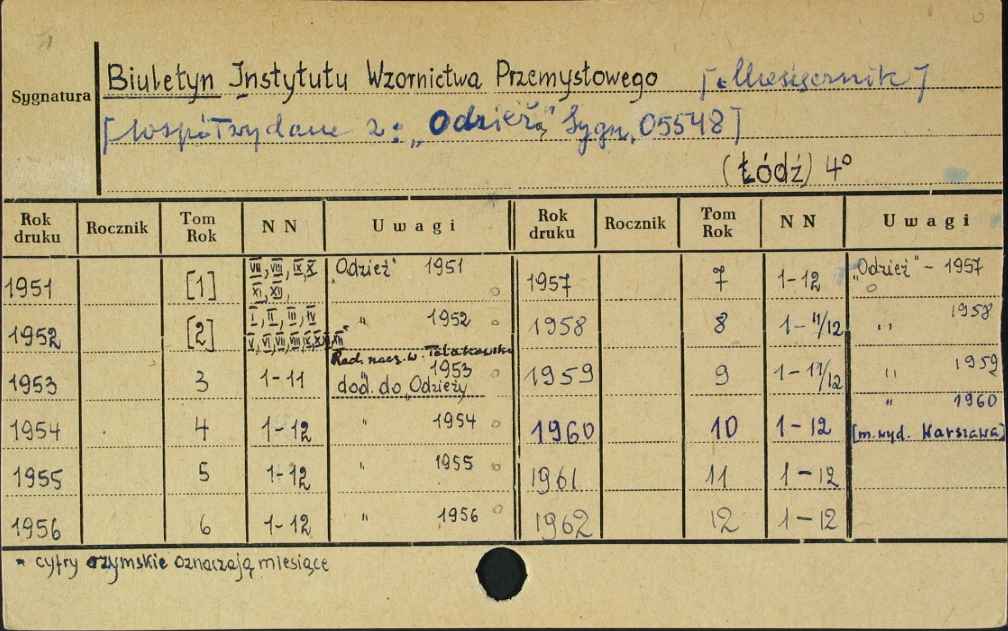 Sygnatura
Biuletyn Instytutu Wzornictwa Przemysłowego [Miesięcznik]
[Współwydane z: "Odzieżą" Sygn. 05548]
(Łódź) 4°
Rok druku Rocznik Tom Rok N N Uwagi Rok druku Rocznik Tom Rok N N Uwagi
1951 [1] VII, VIII, IX, X, XI, XII, "Odzież" 1951
1952 [2] I, II, III, IV V, VI, VII, VIII, IX, X, XI, XII* " 1952
Red. nacz. W.
1953 3 1-11 " 1953 dod. do "Odzieży
1954 4 1-12 " 1954
1955 5 1-12 " 1955
1956 6 1-12 " 1956
1957 7 1-12 "Odzież" - 1957
1958 8 1-11/12 " 1958
1959 9 1-11/12 " 1959
1960 10 1-12 " 1960 [m. wyd. Warszawa]
1961 11 1-12
1962 12 1-12
* cyfry rzymskie oznaczają miesiące